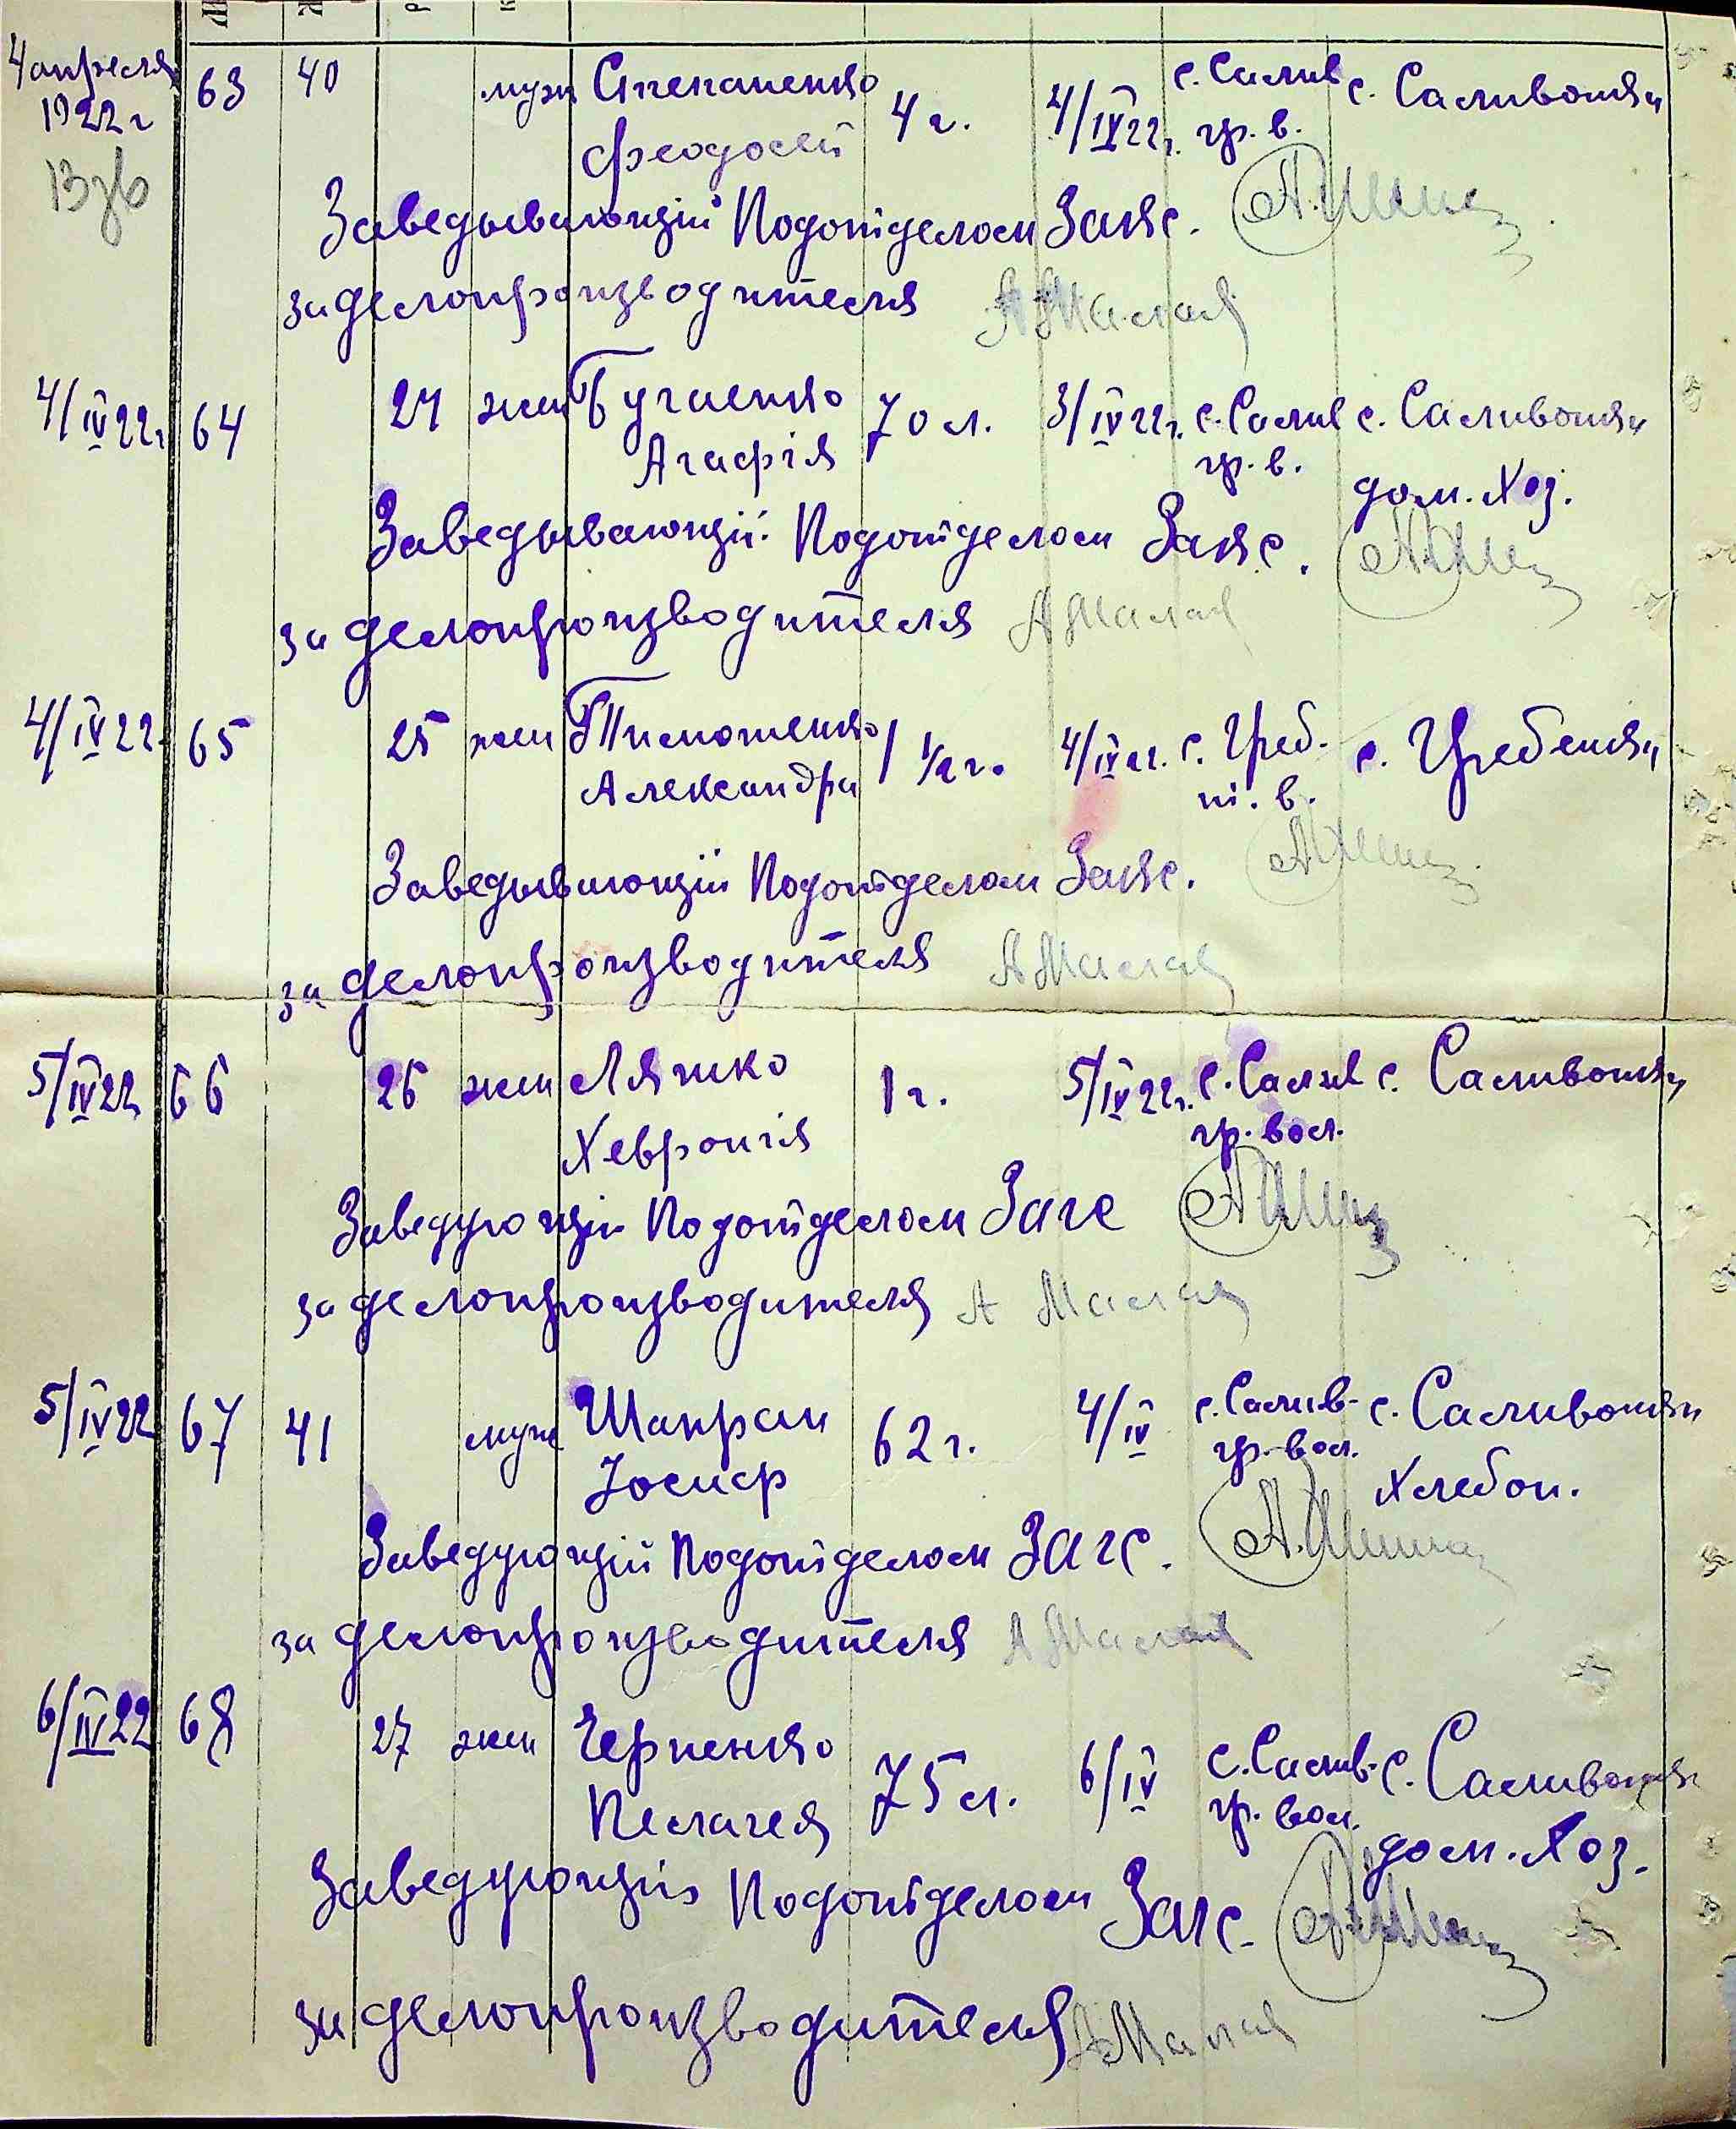 4 апреля 63 40 муж Степаненко 4 г. 4/IV 22 г. с. Салив с. Саливонки
1922 г Феодосей гр. в.
Взв
Заведывающій Подотделом Загс.
за делопроизводителя А Малая
4/IV 22 г 64 24 жен Бугаенко 70 л. 3/IV 22 г. с. Салив с. Саливонки
Агафія гр. в. дом. хоз.
Заведывающій Подотделом Загс.
за делопроизводителя А Малая
4/IV 22 65 25 жен Тимошенко 1 1/2 г. 4/IV 22 г. с. Греб. с. Гребенки
Александра т. в.
Заведывающій Подотделом Загс.
за делопроизводителя А Малая
5/IV 22 66 26 жен Ляшко 1 г. 5/IV 22 г. с. Салив с. Саливонки
Хевронія гр. вол.
Заведующій Подотделом Загс
за делопроизводителя А Малая
5/IV 22 67 41 муж Шапран 62 г. 4/IV с. Салив- с. Саливонки
Іосиф гр. вол. Хлебоп.
Заведующій Подотделом Загс.
за делопроизводителя А Малая
6/IV 22 68 27 жен Черненко 75 л. 6/IV с. Салив- с. Саливонки
Пелагея гр. вол. дом. хоз.
Заведующій Подотделом Загс.
за делопроизводителя А Малая